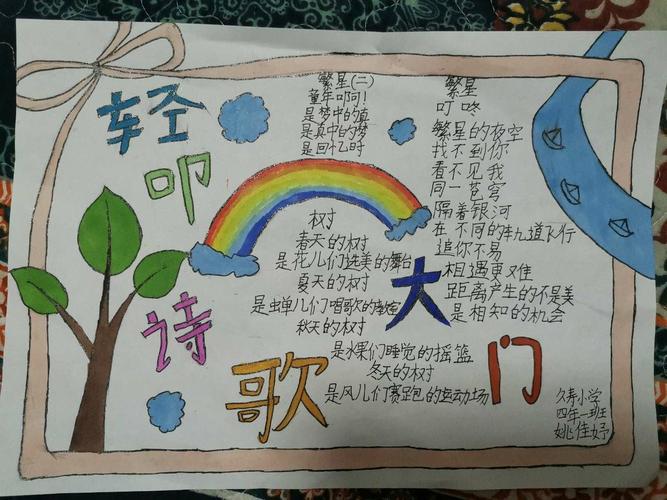 轻
叩
诗
歌
大
门
繁星(二)
童年呵!
是梦中的真
是真中的梦
是回忆时
树
春天的树
是花儿们选美的舞台
夏天的树
是蝉儿们唱歌的教室
秋天的树
是水果们睡觉的摇篮
冬天的树
是风儿们赛跑的运动场
繁星
叮咚
繁星的夜空
找不到你
看不见我
同一苍穹
隔着银河
在不同的轨道飞行
追你不易
相遇更难
距离产生的不是美
是相知的机会
久寿小学
四年一班
姚佳妤